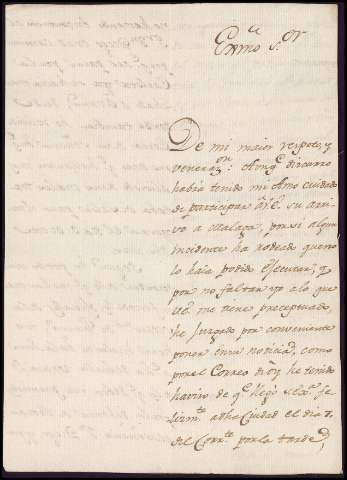 Exmo Sor
De mi maior respeto, y
venerazon: Aunqe discurro
habra tenido mi Amo cuidado
de participar á VE. su arri-
vo a Malaga, por si algun
incidente ha rodeado que no
lo haia podido ejecutar, y
por no faltar yo a lo que
VE. me tiene preceptuado,
he Juzgado por conveniente
poner en su noticia, como
por el Correo de oy he tenido
haviso de qe llegó
a dha Ciudad el dia 7.
del Corrte por la tarde,